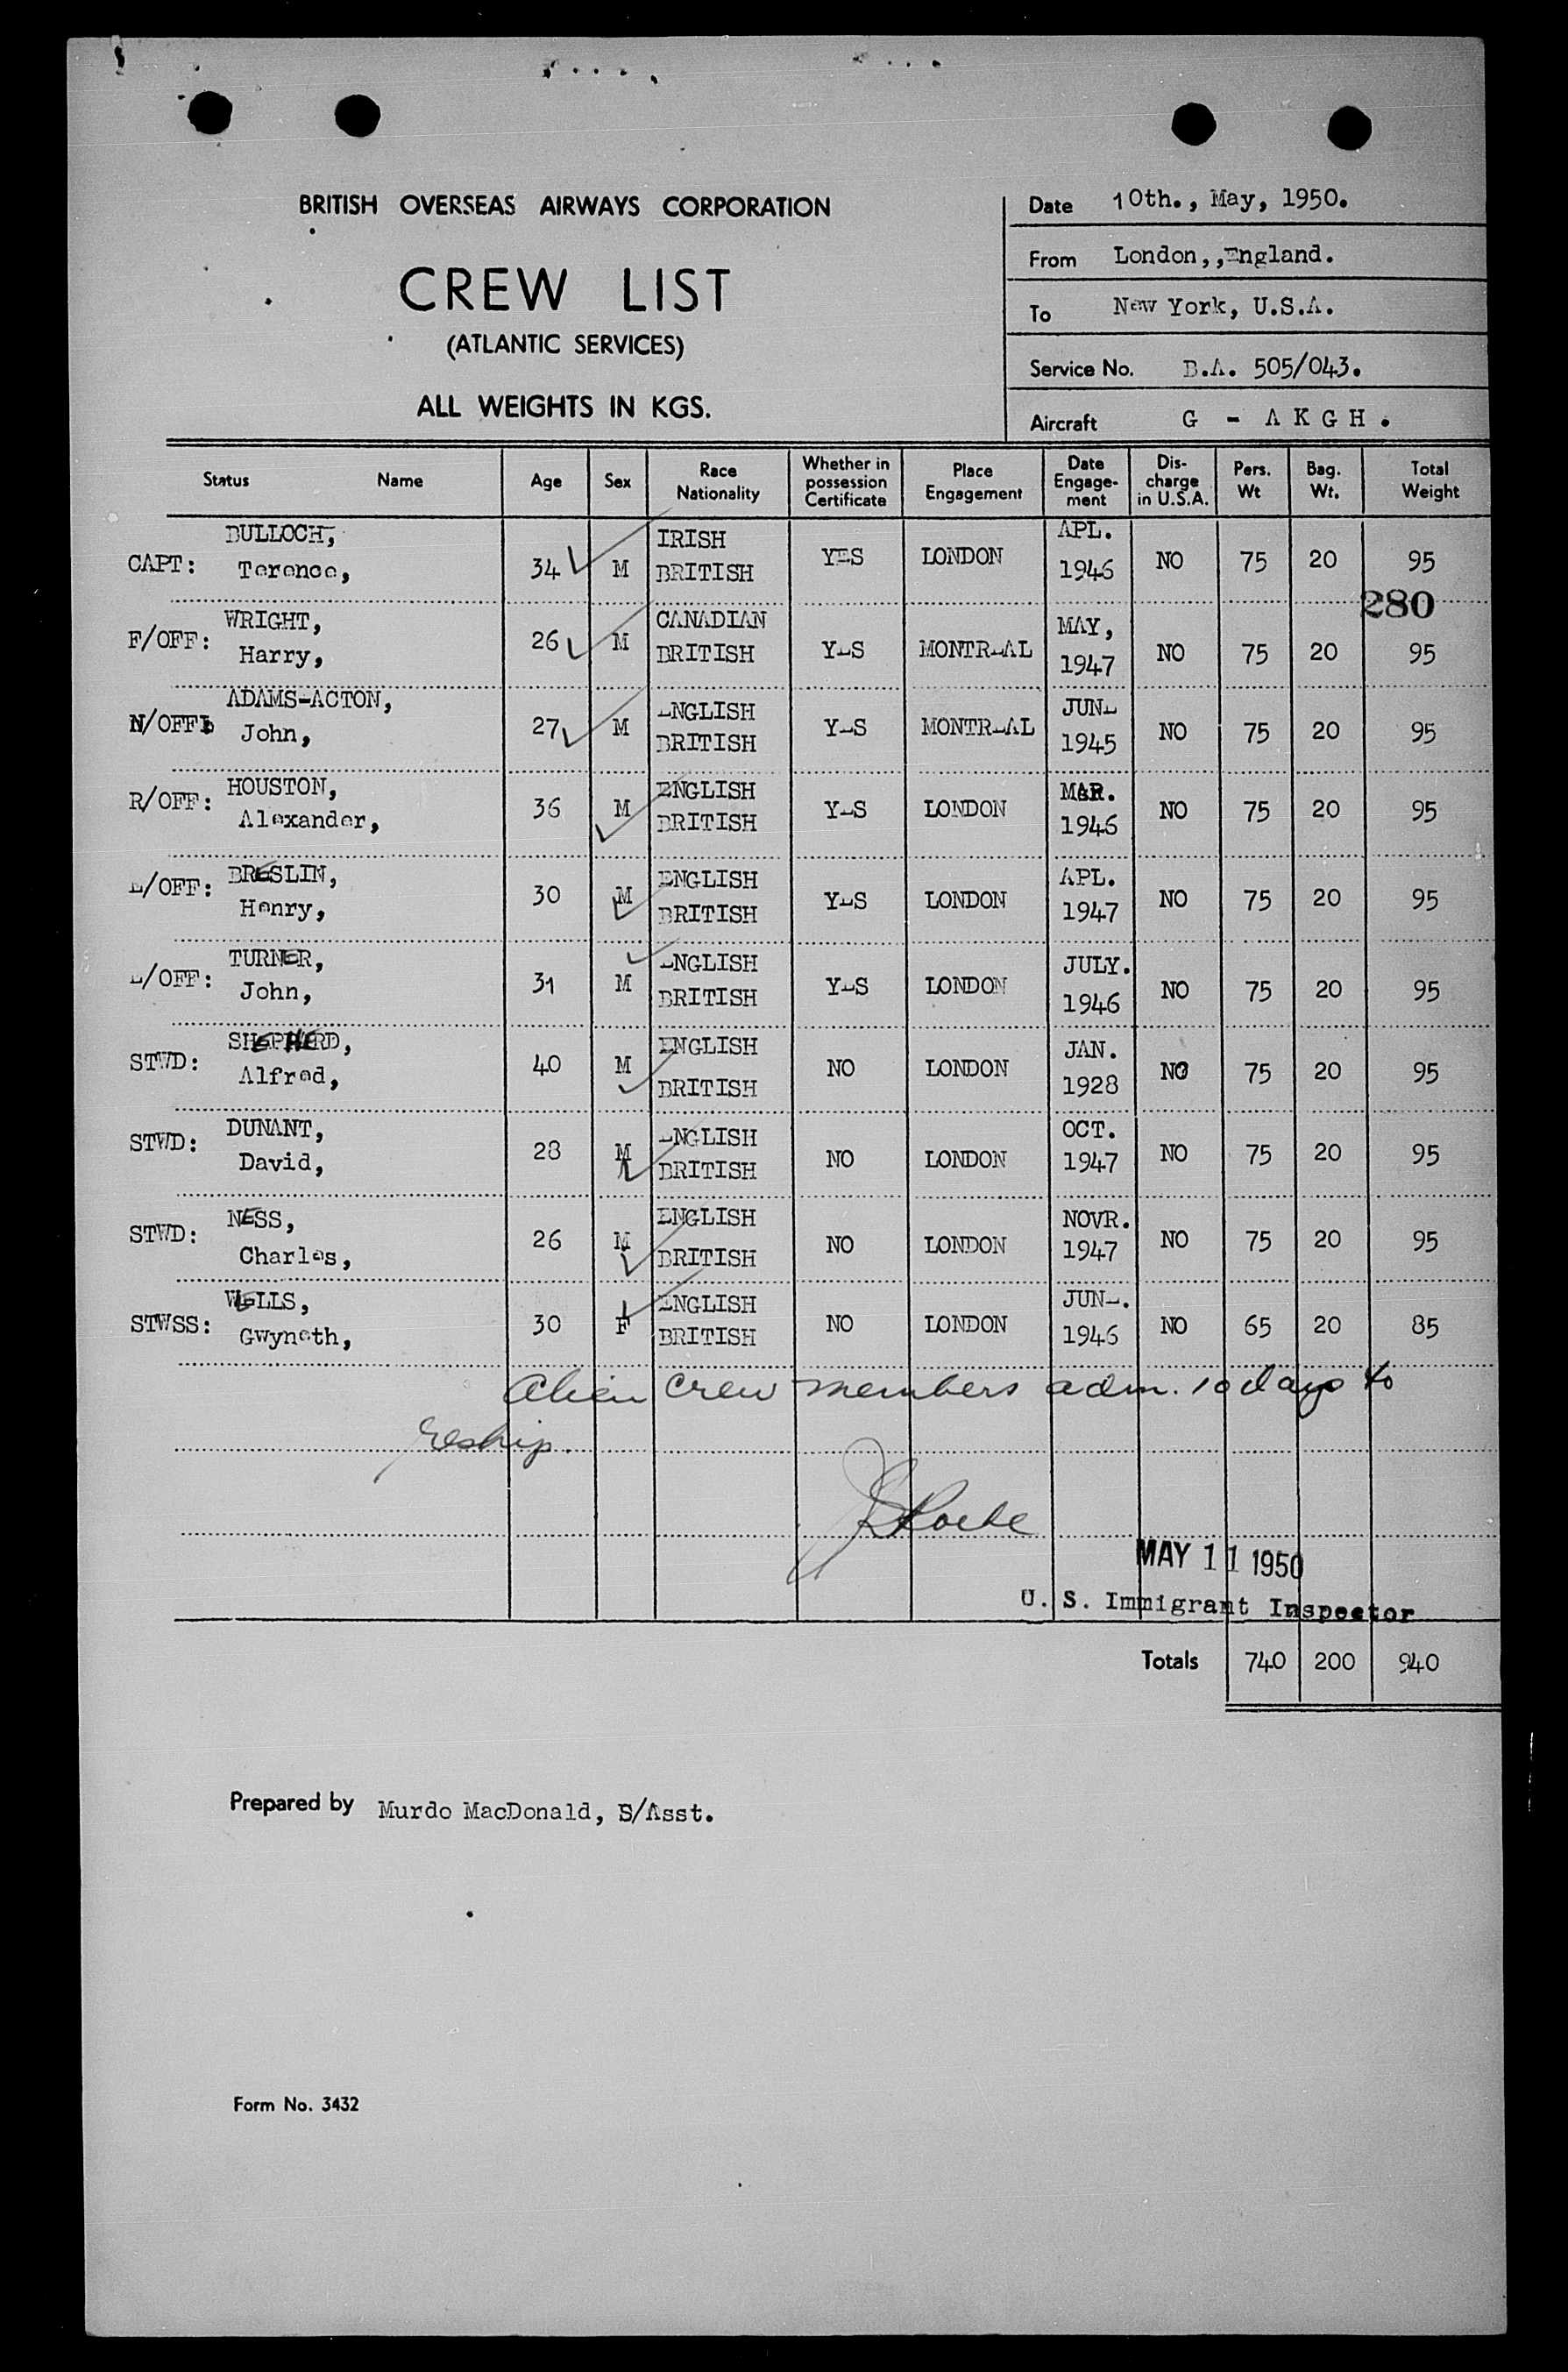 BRITISH OVERSEAS AIRWAYS CORPORATION
CREW LIST
(ATLANTIC SERVICES)
ALL WEIGHTS IN KGS.
Date 10th., May, 1950.
From London,,England.
To New York, U.S.A.
Service No. B.A. 505/043.
Aircraft G - A K G H .
Status Name Age Sex Race Nationality Whether in possession Certificate Place Engagement Date Engage-ment Dis-charge in U.S.A. Pers. Wt Bag. Wt. Total Weight
CAPT: BULLOCH, Terence, 34 M IRISH BRITISH YES LONDON APL. 1946 NO 75 20 95
280
F/OFF: WRIGHT, Harry, 26 M CANADIAN BRITISH YES MONTREAL MAY, 1947 NO 75 20 95
N/OFF: ADAMS-ACTON, John, 27 M ENGLISH BRITISH YES MONTREAL JUNE 1945 NO 75 20 95
R/OFF: HOUSTON, Alexander, 36 M ENGLISH BRITISH YES LONDON MAR. 1946 NO 75 20 95
E/OFF: BRESLIN, Henry, 30 M ENGLISH BRITISH YES LONDON APL. 1947 NO 75 20 95
E/OFF: TURNER, John, 31 M ENGLISH BRITISH YES LONDON JULY. 1946 NO 75 20 95
STWD: SHEPHERD, Alfred, 40 M ENGLISH BRITISH NO LONDON JAN. 1928 NO 75 20 95
STWD: DUNANT, David, 28 M ENGLISH BRITISH NO LONDON OCT. 1947 NO 75 20 95
STWD: NESS, Charles, 26 M ENGLISH BRITISH NO LONDON NOVR. 1947 NO 75 20 95
STWSS: WELLS, Gwyneth, 30 F ENGLISH BRITISH NO LONDON JUNE. 1946 NO 65 20 85
Alien crew members adm. 10 days to
reship.
MAY 11 1950
U. S. Immigrant Inspector
Totals 740 200 940
Prepared by Murdo MacDonald, S/Asst.
Form No. 3432